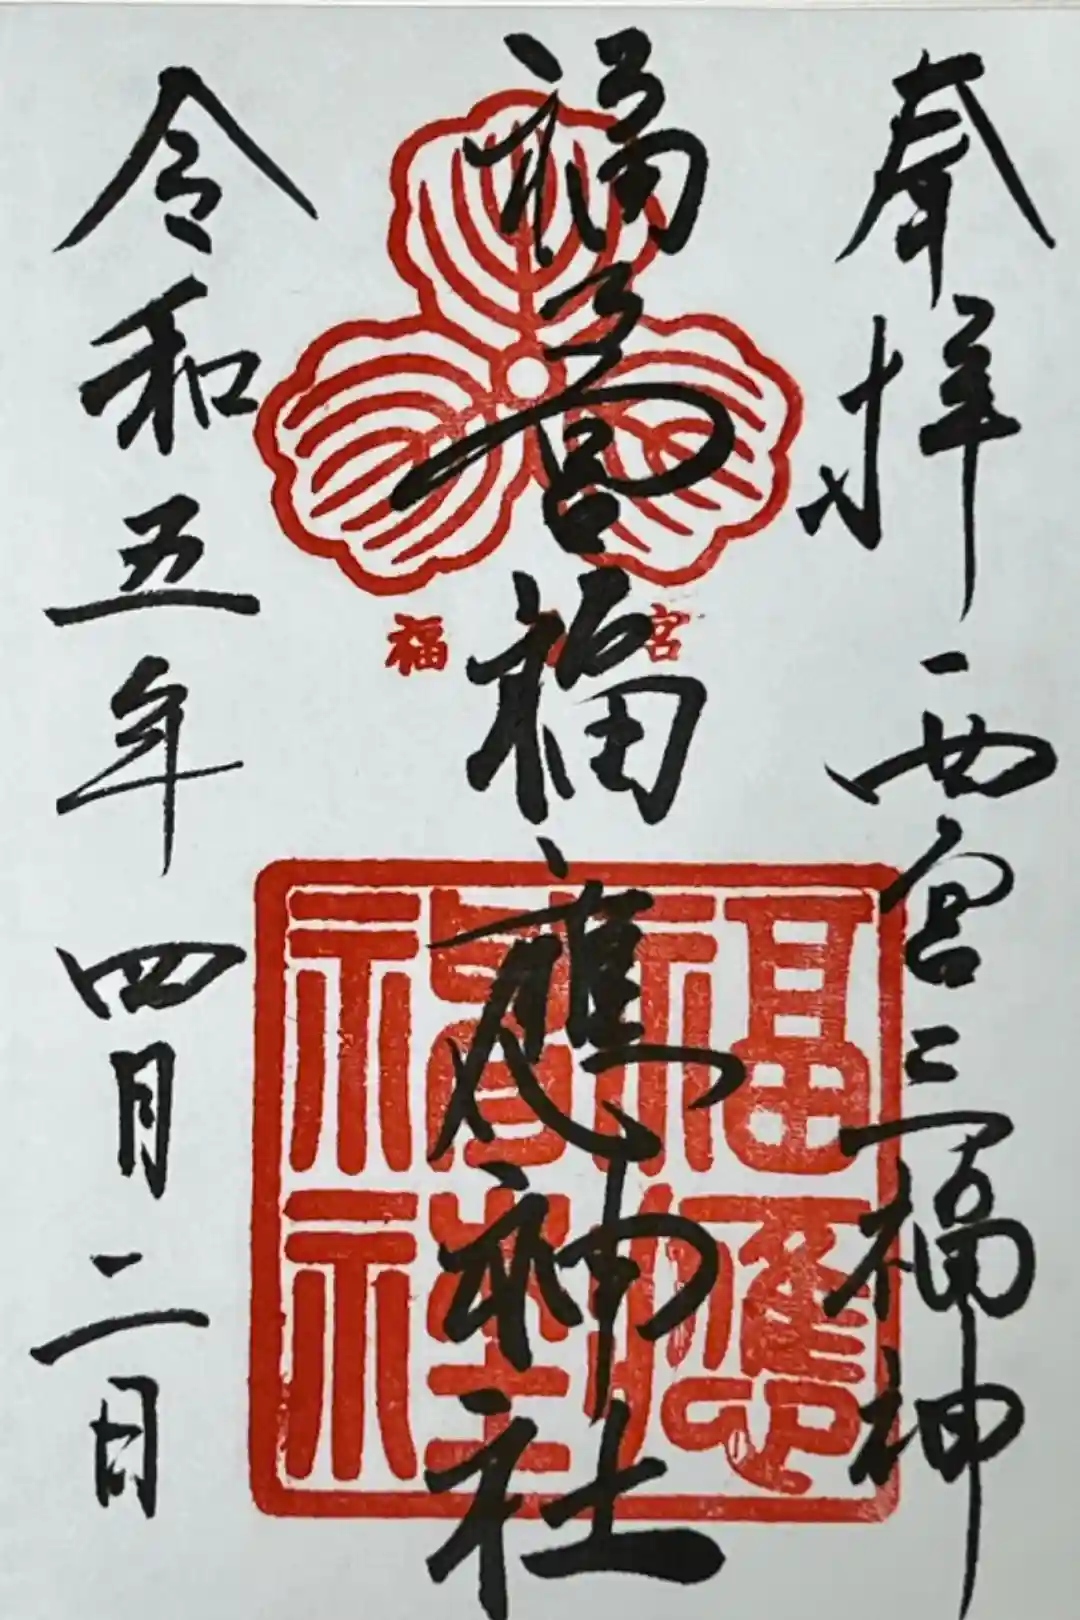 奉拝 西宮三福神
福 福應神社
令和五年四月二日
福 宮
福應
神社